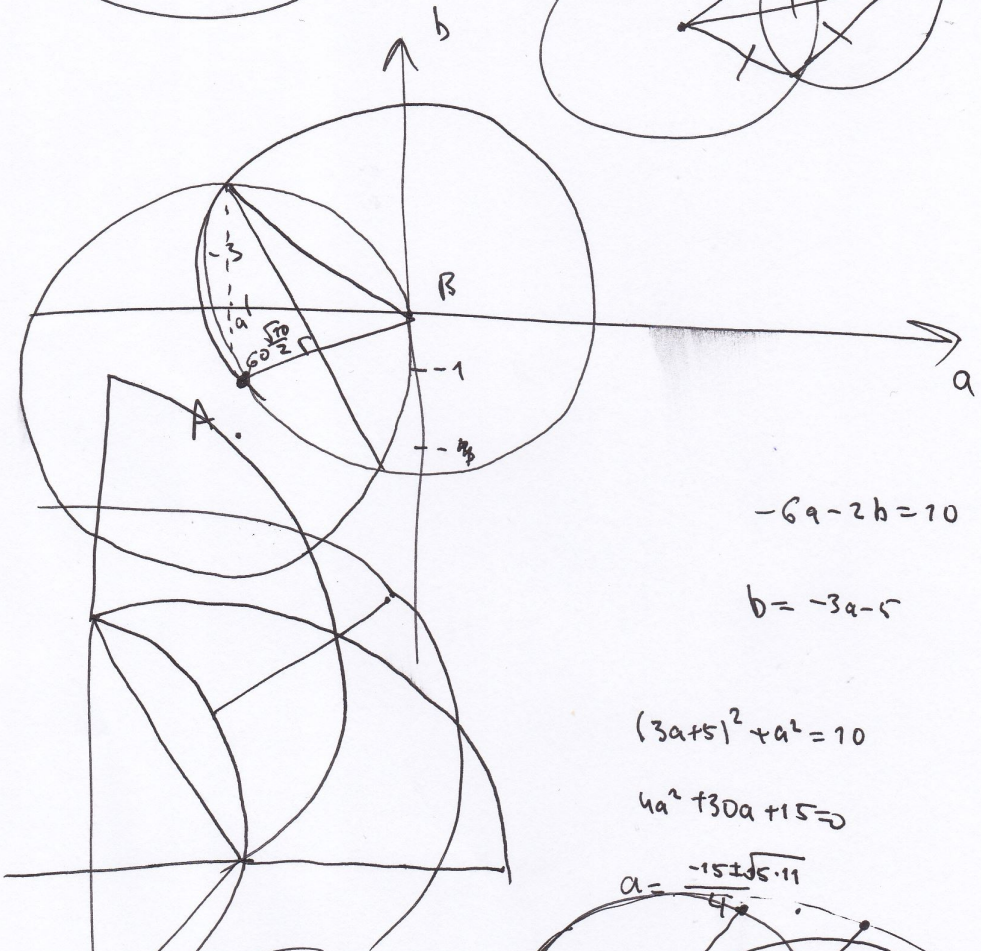 b
-3
B
a
60 √10/2
-1
a
A
-6a-2b=10
b= -3a-5
(3a+5)²+a²=10
4a²+30a+15=0
a= (-15±√5·11)/4